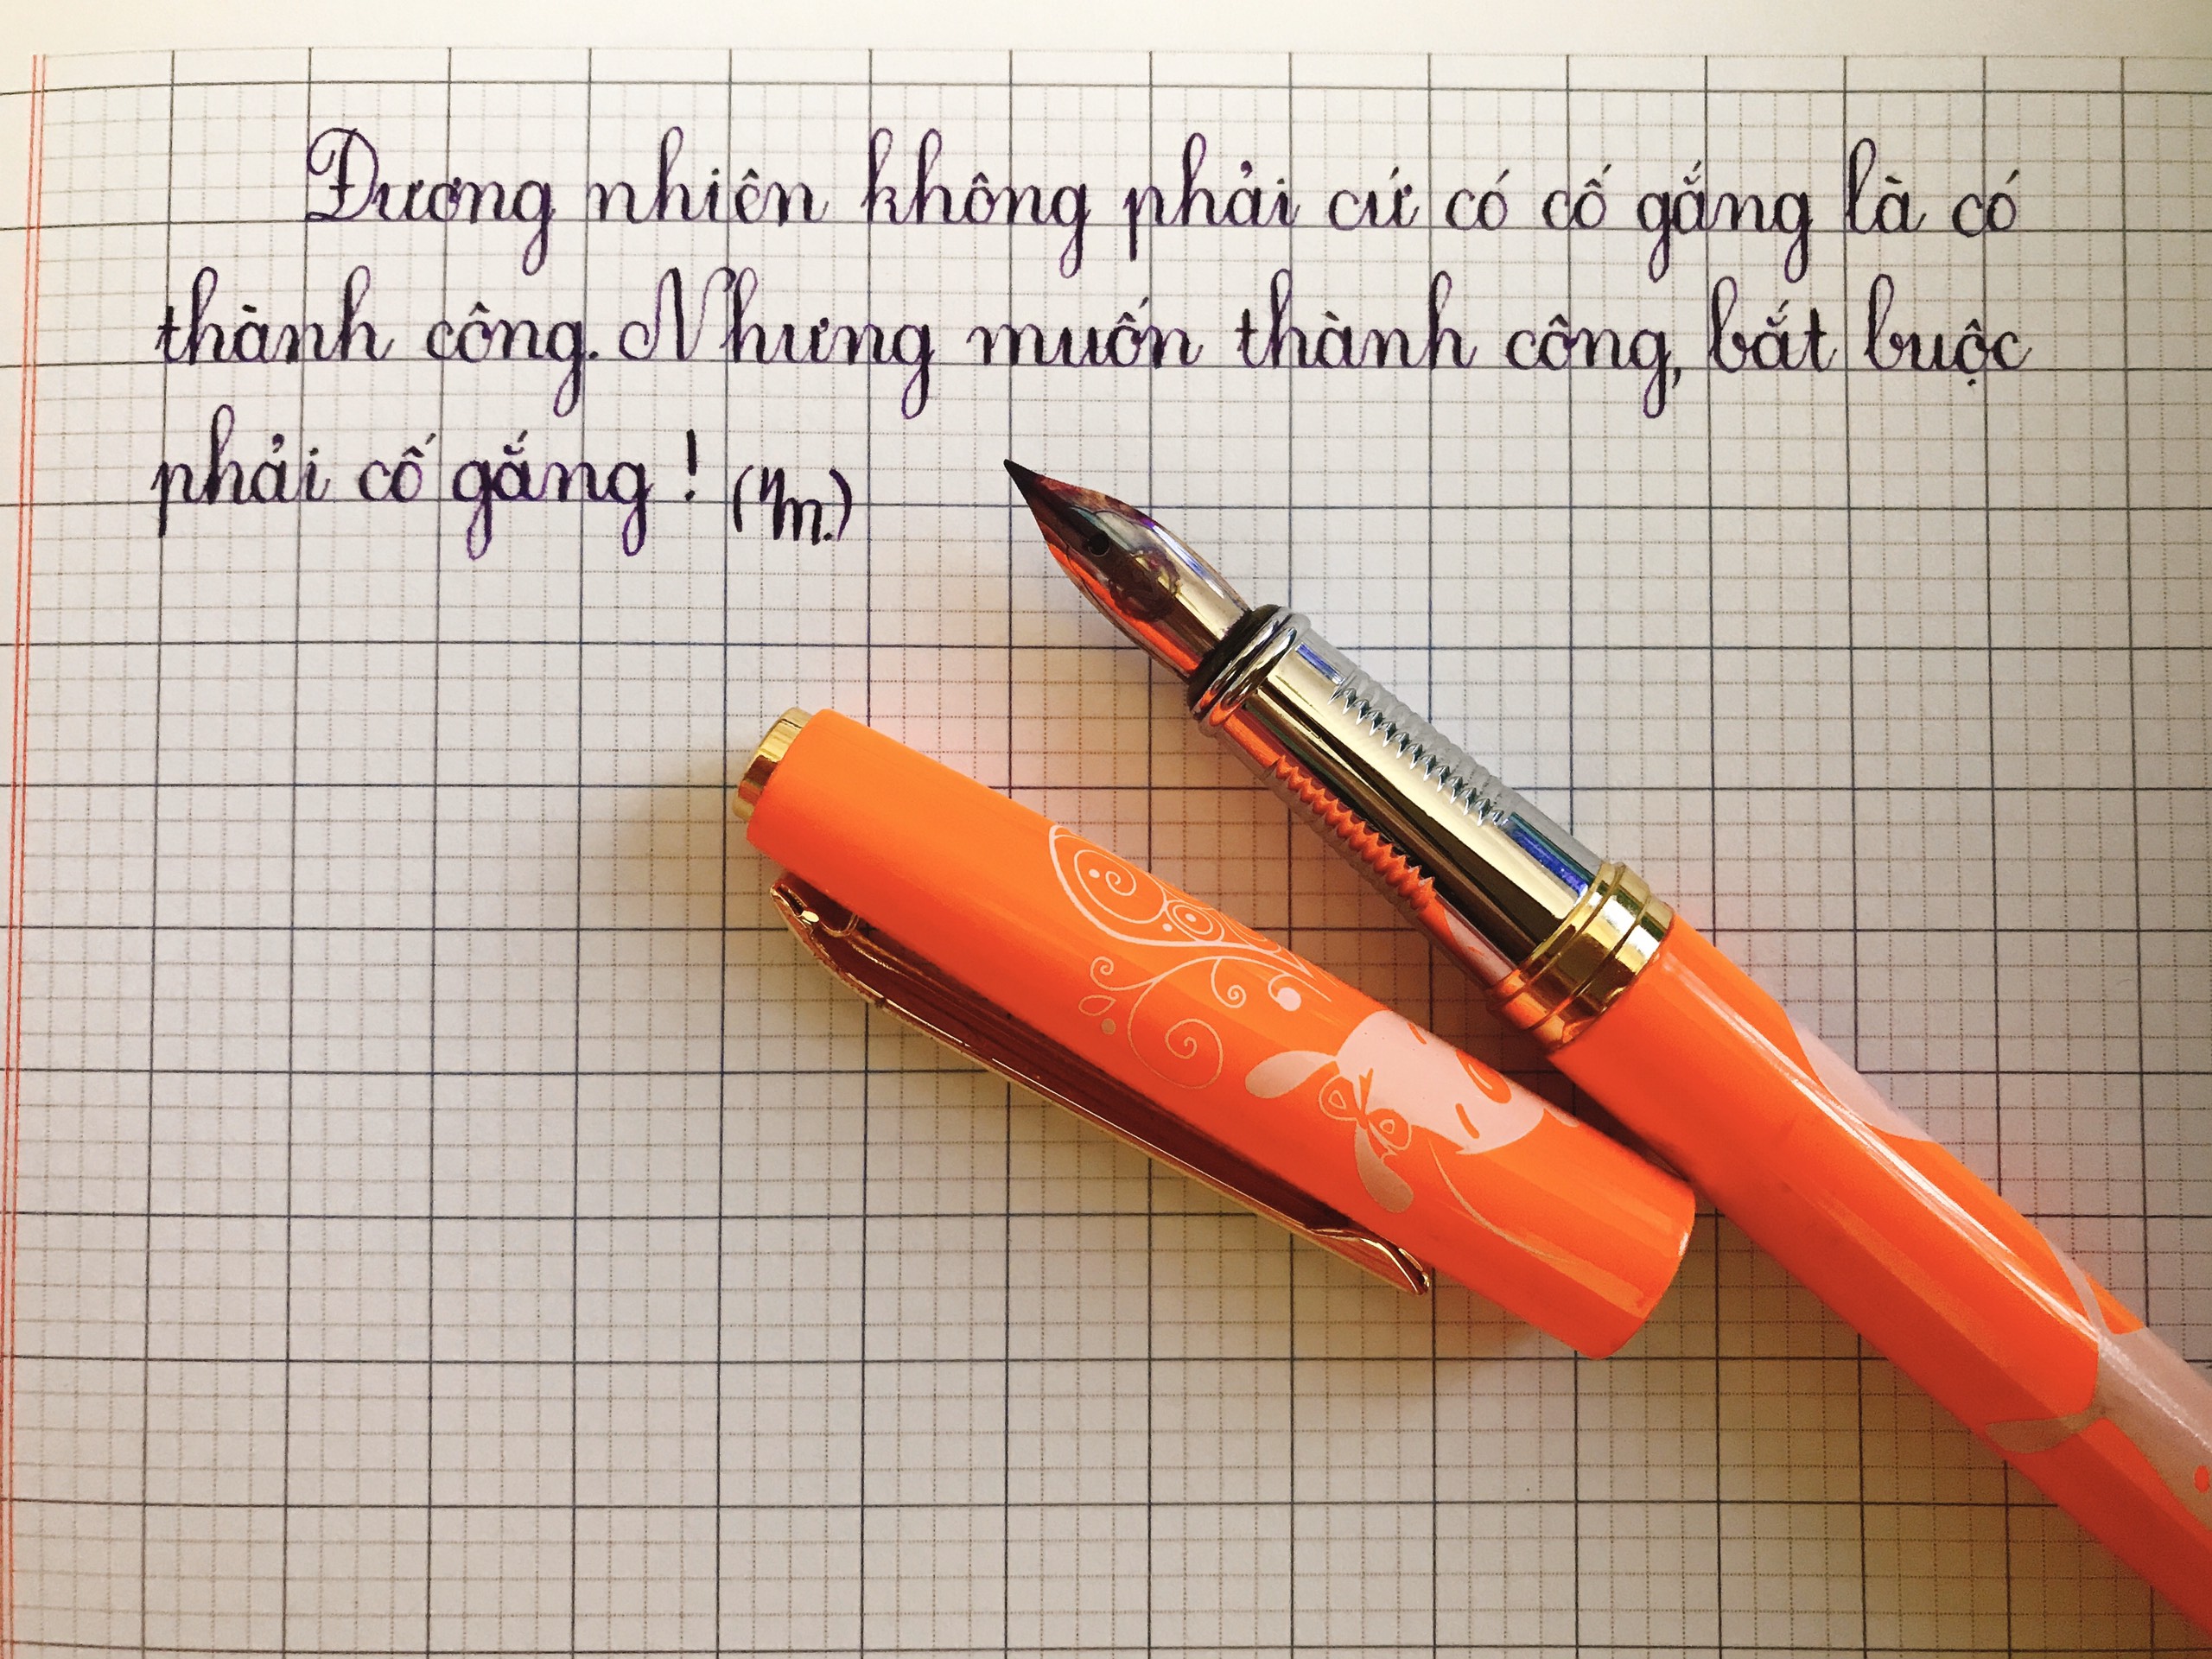 Đương nhiên không phải cứ có cố gắng là có
thành công. Nhưng muốn thành công, bắt buộc
phải cố gắng !